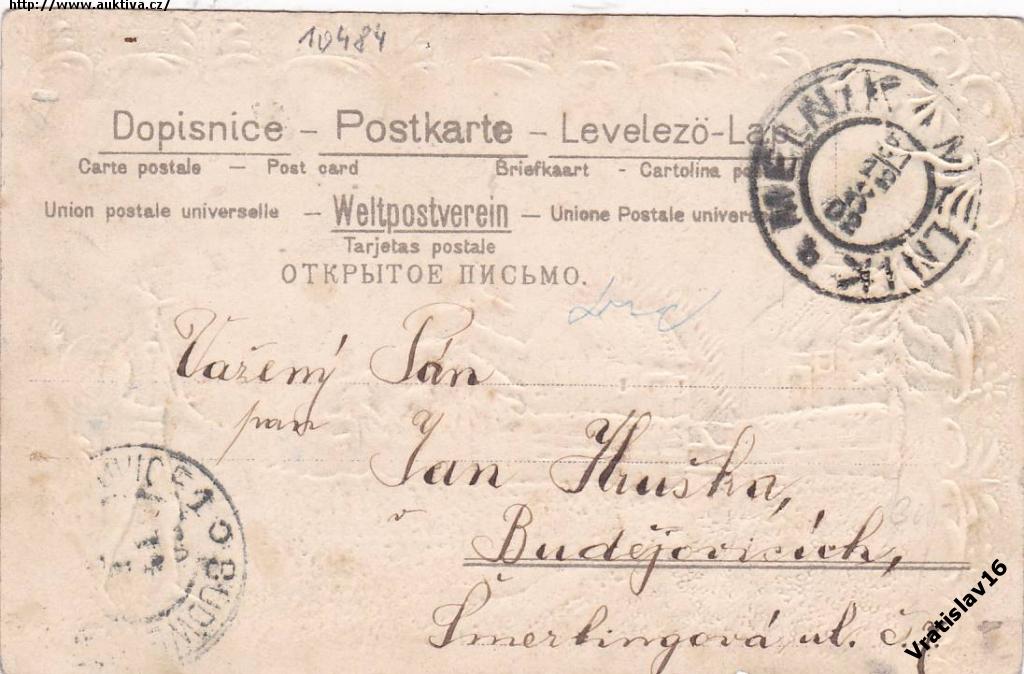 http://www.auktiva.cz/
10484
Dopisnice – Postkarte – Levelezö-Lap
Carte postale — Post card Briefkaart - Cartolina
Union postale universelle – Weltpostverein – Unione Postale univers
Tarjetas postale
ОТКРЫТОЕ ПИСЬМО.
MĚLNÍK MELNIK
Vážený Pán
pan
Jan Hruška,
v Budějovicích,
Šmerlingová ul. č.
VICE 1 BUDW
Vratislav16